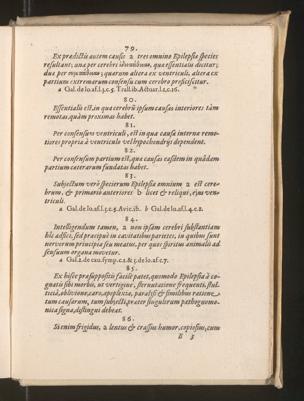 79.
Ex prædictis autem causis a tres omnino Epilepsiæ species
resultant; una per cerebri quæ essentialis dicitur;
duæ per quarum altera ex ventriculi, altera ex
partium extremarum consensu cum cerebro
a Gal. de lo. af. l.3. c.5. Trall. ib. Actuar. l.1. c.16.
80.
Essentialis est, in qua cerebrū ipsum causas interiores tàm
remotas, quàm proximas habet.
81.
Per consensum ventriculi, est in qua causæ internæ remo-
tiores propriæ à ventriculo vel hypochondrijs dependent.
82.
Per consensum partium est, quæ causas easdem in quādam
partium cæterarum fundatas habet.
83.
Subjectum verò specierum Epilepsiæ omnium a est cere-
brum, & primariò anteriores b licet & reliqui, ejus ven-
triculi.
a Gal. de lo. af. l.3. c.5. Avic. ib. b Gal. de lo. af. l.4. c.2.
84.
Intelligendum tamen, a non ipsam cerebri substantiam
hîc adfici, sed præcipuè in cavitatibus parietes, in quibus sunt
nervorum principia seu meatus, per quos spiritus animalis ad
sensuum organa movetur.
a Gal. 2. de cau. symp. c.2. & 3. de lo. af. c.7.
85.
Ex hisce præsuppositis facilè patet, quomodo Epilepsia à co-
gnatis sibi morbis, ut vertigine, sternutatione frequenti, stul-
titiâ, oblivione, caro, apoplexia, paralysi & similibus ratione
tum causarum, tum subjecti, præter singulorum pathognomo-
nica signa, distingui debeat.
86.
Si enim frigidus, a lentus & crassus humor, copiosus, cum
B 3